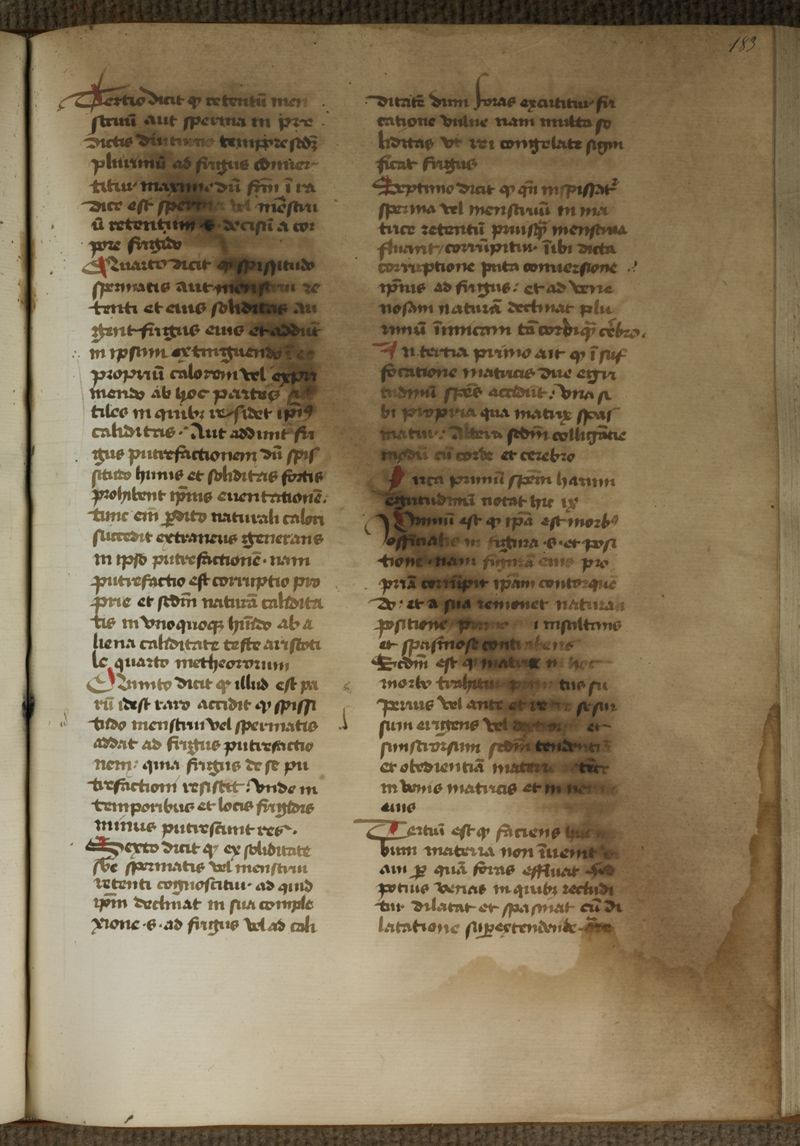 183
Tertio dicit qꝫ retentū men
struū aut sperma in pre
dictis diuturno tempore sedꝫ
plurimū ad frigus conuer
titur maxime dū sꝫm ī ra
dice est sperma vel mēstru
ū retentum .s. decisū a cor
pore frigido
Quarto dicit qꝫ spissitudo
spermatis aut menstrui re
tenti et eius soliditas au
gent frigus eius et addūt
in ipsum extinguendo
propriū calorem vel expri
mendo ab hoc partes sub
tiles in quibꝫ residet ipsiꝰ
caliditas. Aut addunt fri
gus putrefactionem dū spis
situdo huius et soliditas fortis
prohibent ipsius euentationē.
tunc em̄ perdito naturali calori
succedit extraneus generans
in ipso putrefactionē. nam
putrefactio est corruptio pro
prie et sꝫdm naturā caliditā
tis in vnoquoqꝫ humido ab a
liena caliditate teste aristoti
le quarto metheororum
Quinto dicit qꝫ illud est pa
rū idest raro accidit qꝫ spissi
tudo menstrui vel spermatis
addat ad frigus putrefactio
nem: quia frigus de se pu
trefactioni resistit: Vnde in
temporibus et locis frigidis
minus putrescunt res.
Sexto dicit qꝫ ex soliditate
sbē spermatis vel menstrui
retenti cognoscitur ad quid
ipm declinat in sua comple
xione .s. ad frigus vel ad cali
ditatē dum foras excutitur fri
catione vulue nam multa so
liditas vt rei congelate signi
ficat frigus
Septimo dicit qꝫ qn̄ inspissat᷑
sperma vel menstruū in ma
trice retentū priusqꝫ menstrua
fluant corrūpitur ībi dicta
corruptione puta conuersione
ipsius ad frigus: et ad vene
nosam naturā declinat plu
rimū inimicam tā cordi qꝫ cēbro.
In tertia primo ait qꝫ ī suf
focatione matricis due egri
tudinū spēs accidūt: Vna si
bi propria qua matrix spas
matur: Altera sꝫdm colligātie
modū cū corde et cerebro
Circa primū spēm harum
egritudinū notat hic ix
Primū est qꝫ ipā est morbꝰ
officialis in figura .s. et posi
tione. nam figurā eius pro
priā corrūpit ipam contorque
do: et a sua remouet naturali
positione
et spasmose
Sꝫdm est qꝫ matrix in hoc
morbo trahitur
perius vel ante et retro seu
sum erigens vel
sinistrorsum sꝫdm
et obedientiā materie
in venis matricis et in
eius
Tertiū est qꝫ faciens
bum materia non īuenit
am ꝑ quā foras effluat sed
potius venas in quibꝫ recludi
tur dilatat et spasmat cū di
latatione superextendendo